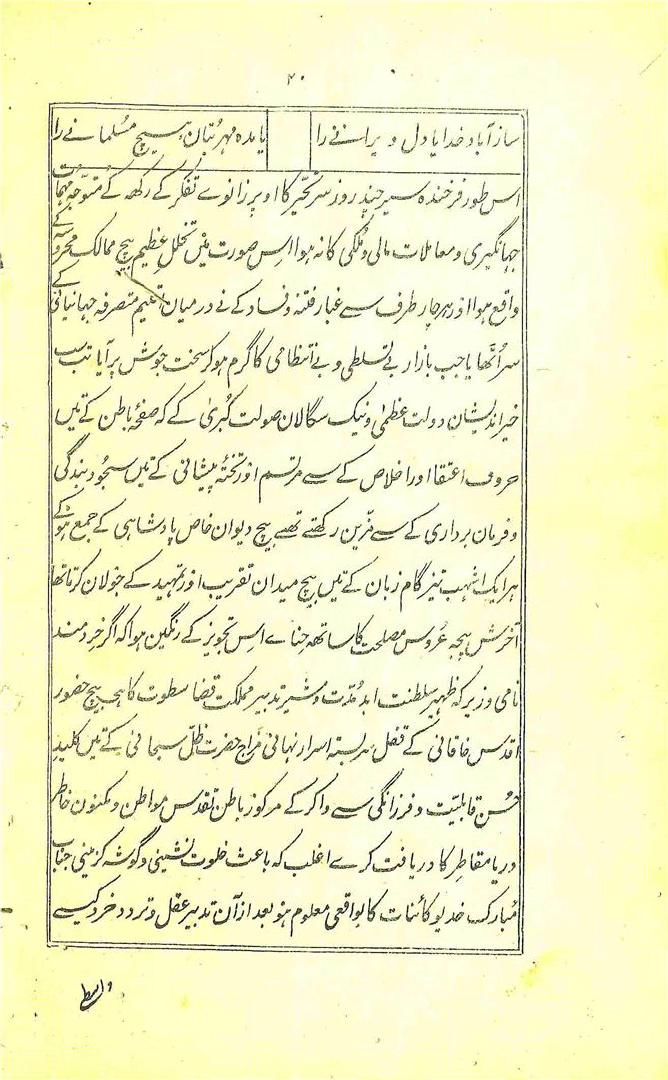 ۲۰
ساز آباد خدایا دل ویرانے را یا بدہ مہر بتان ہیچ مسلمانے را
اس طور فرخندہ سیر چند روز سر تحیر کا اوپر زانوے تفکر کے رکھہ کے متوجہ مہمات
جہانگیری و معاملات مالی و ملکی کا نہ ہوا اس صورت میں تخلل عظیم بیچ ممالک محروسہ کے
واقع ہوا اور ہر چار طرف سے غبار فتنہ و فساد کے نے درمیان اقلیم متصرفہ جہانبانی کے
سر اٹھایا جب بازار بے تسلطی و بے انتظامی کا گرم ہو کر سخت جوش پر آیا تب سب
خیر اندیشان دولت عظمیٰ و نیک سگالان صولت کبریٰ کے کہ صفحۂ باطن کے تیں
حروف اعتقاد اور اخلاص کے سے مرتسم اور تختۂ پیشانی کے تیں سجود بندگی
و فرمان برداری کے سے مزین رکھتے تھے بیچ دیوان خاص پادشاہی کے جمع ہو کے
ہر ایک اشہب تیز گام زبان کے تیں بیچ میدان تقریب اور تمہید کے جولان کرتا تھا
آخرش پنجہ عروس مصلحت کا ساتھہ حناے اس تجویز کے رنگین ہوا کہ اگر خردمند
نامی وزیر کہ ظہیر سلطنت ابد مدت و مشیر تدبیر مملکت قضا سطوت کا ہے بیچ حضور
اقدس خاقانی کے قفل سربستہ اسرار نہانی مزاج حضرت ظل سبحانی کے تیں کلید
حسن قابلیت و فرزانگی سے وا کر کے مرکوز باطن تقدس مواطن و مکنون خاطر
دریا مقاطر کا دریافت کرے اغلب کہ باعث خلوت نشینی و گوشہ گزینی جناب
مبارک خدیو کائنات کا بواقعی معلوم ہو بعد از آن تدبیر عقل و تردد خرد کیسے
واسطے